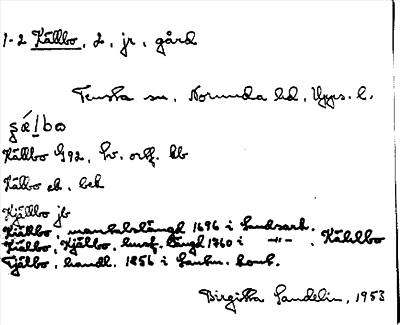 1-2 Källbo, 2, jr, gård
Tensta sn, Norunda hd, Upps. l.
Källbo G92, Sv. orff. kb
Källbo ek. bek
Kjällbo jb
Källbo, mantalslängd 1696 i Landsark.
Källbo, Kjälbo, husf. längd 1760 i -"-. Kählbo
Kjälbo, handl. 1856 i Lantm. kont.
Birgitta Sandelin, 1953